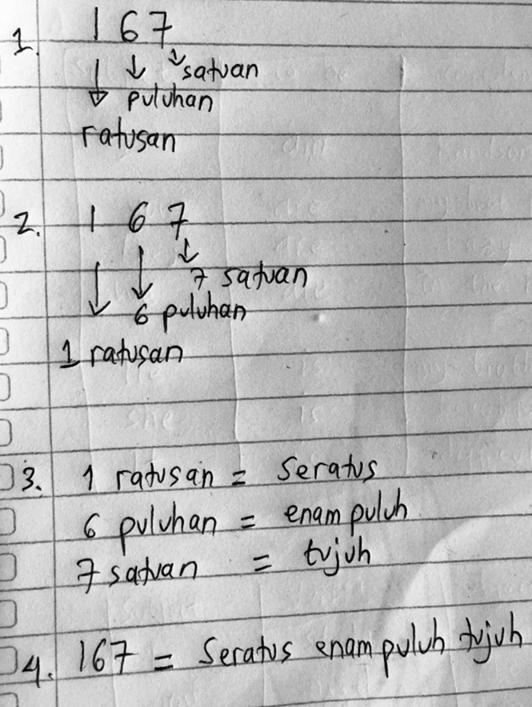 1. 1 6 7
satuan
puluhan
ratusan
2. 1 6 7
7 satuan
6 puluhan
1 ratusan
3. 1 ratusan = Seratus
6 puluhan = enam puluh
7 satuan = tujuh
4. 167 = Seratus enam puluh tujuh